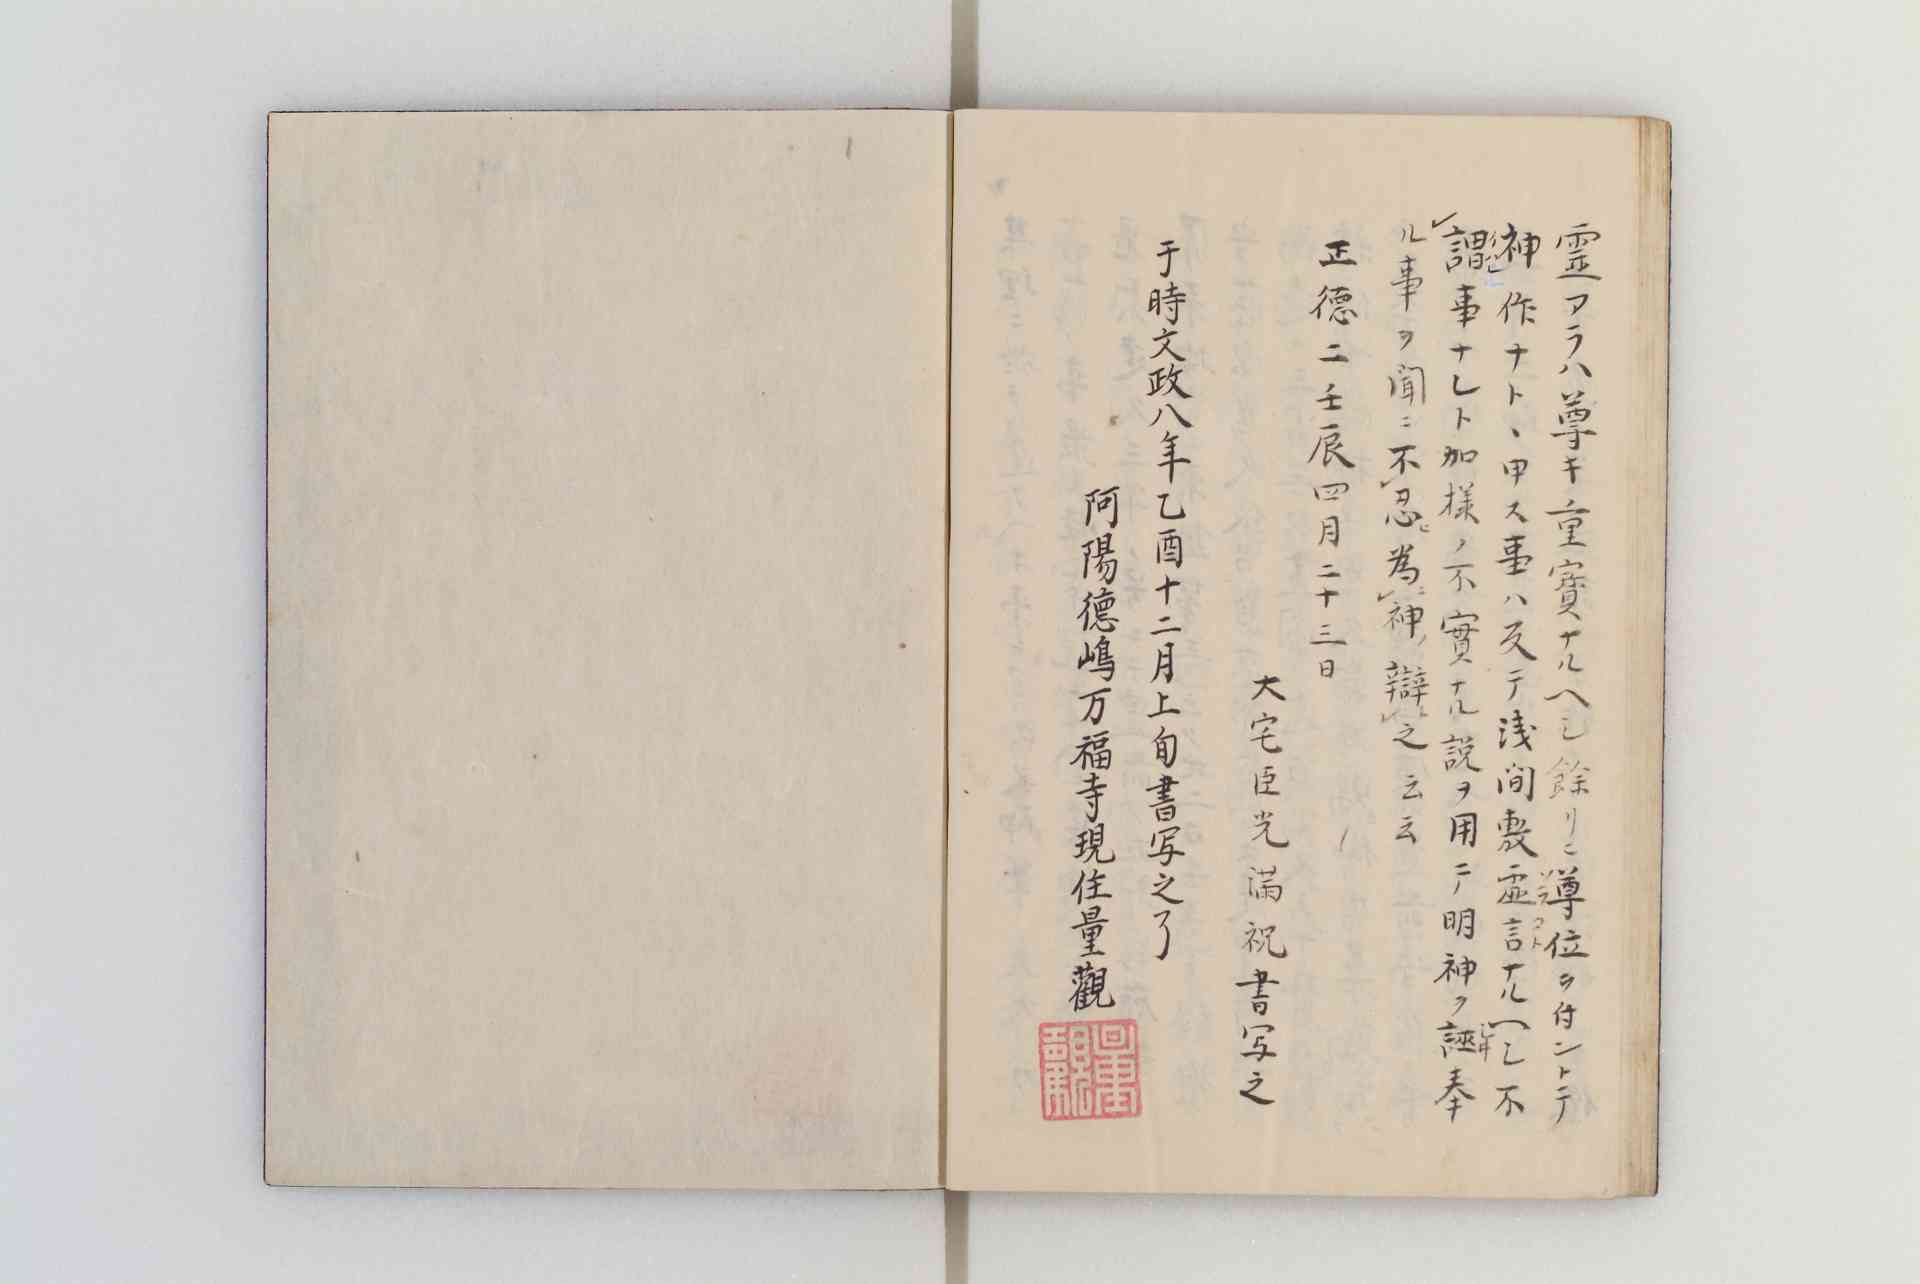 靈アラハ尊キ重寳ナルヘシ餘リニ尊位ヲ付ントテ
神作ナトヽ申ス事ハ反テ浅間敷虚言ナルヘシ不
謂事ナレト加様ノ不實ナル説ヲ用ニテ明神ヲ誣奉
ル事ヲ聞ニ不忍為神辯之云云
正德二壬辰四月二十三日
大宅臣光満祝書写之
于時文政八年乙酉十二月上旬書写之了
阿陽德嶋万福寺現住量觀
量觀